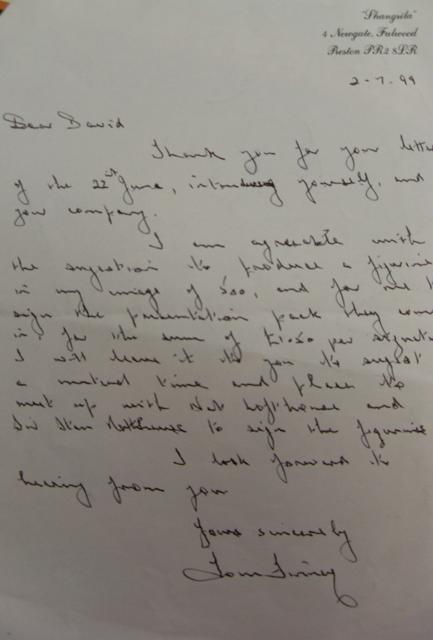 "Shangrila"
4 Newgate, Fulwood
Preston PR2 8LR
2-7-99
Dear David
Thank you for your lette
of the 22nd June, introducing yourself, and
your company.
I am agreeable with
the sugestion to produce a figurine
in my image of 500, and for me t
sign the presentation pack they com
in, for the sum of £1.50 per signatu
I will leave it to you to sugest
a mutual time and place to
meet up with Nat Lofthouse and
Sir Stan Matthews to sign the figurine
I look forward to
hearing from you
Yours sincerely
Tom Finney